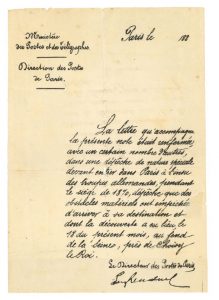 Ministère
des Postes et des Télégraphes
Direction des Postes
de Paris.
Paris le 188
La lettre qu'accompagne
la présente note était renfermée
avec un certain nombre d'autres,
dans une dépêche de nature spéciale
devant entrer dans Paris à l'insu
des troupes allemandes, pendant
le siège de 1870, dépêche que des
obstacles matériels ont empêchée
d'arriver à sa destination et
dont la découverte a eu lieu le
18 du présent mois, au fond
de la Seine, près de Choisy
le Roi.
Le Directeur des Postes de Paris,